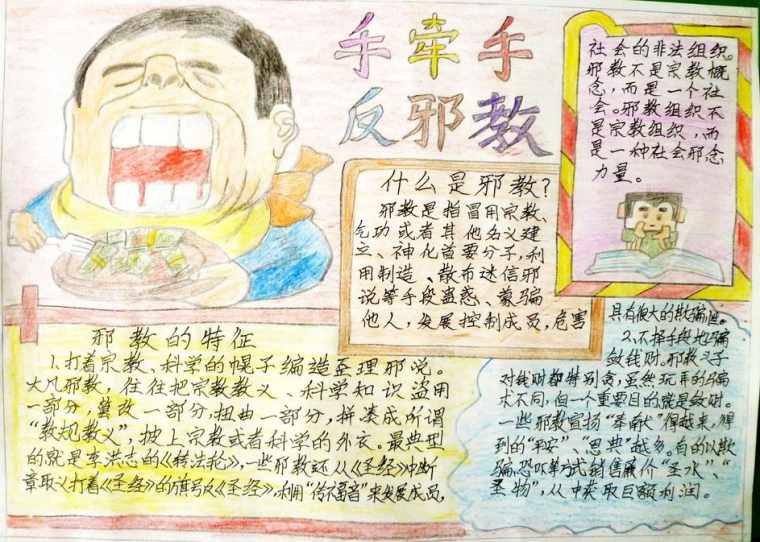 手牵手
反邪教
什么是邪教?
邪教是指冒用宗教、
气功或者其他名义建
立、神化首要分子,利
用制造、散布迷信邪
说等手段蛊惑、蒙骗
他人,发展控制成员,危害
社会的非法组织。
邪教不是宗教概
念,而是一个社
会。邪教组织不
是宗教组织,而
是一种社会邪恶
力量。
邪教的特征
1.打着宗教、科学的幌子编造歪理邪说。
大凡邪教,往往把宗教教义、科学知识盗用
一部分,篡改一部分,扭曲一部分,拼凑成所谓
“教规教义”,披上宗教或者科学的外衣。最典型
的就是李洪志的《转法轮》,一些邪教还从《圣经》中断
章取义打着《圣经》的旗号反《圣经》,利用“传福音”来发展成员,
具有很大的欺骗性。
2.不择手段地骗
敛钱财。邪教分子
对钱财都特别贪,虽然玩弄的骗
术不同,但一个重要目的就是敛财。
一些邪教宣扬“奉献”得越来,得
到的“平安”、“恩典”越多。有的以欺
骗、恐吓等方式销售廉价“圣水”、“
圣物”,从中获取巨额利润。